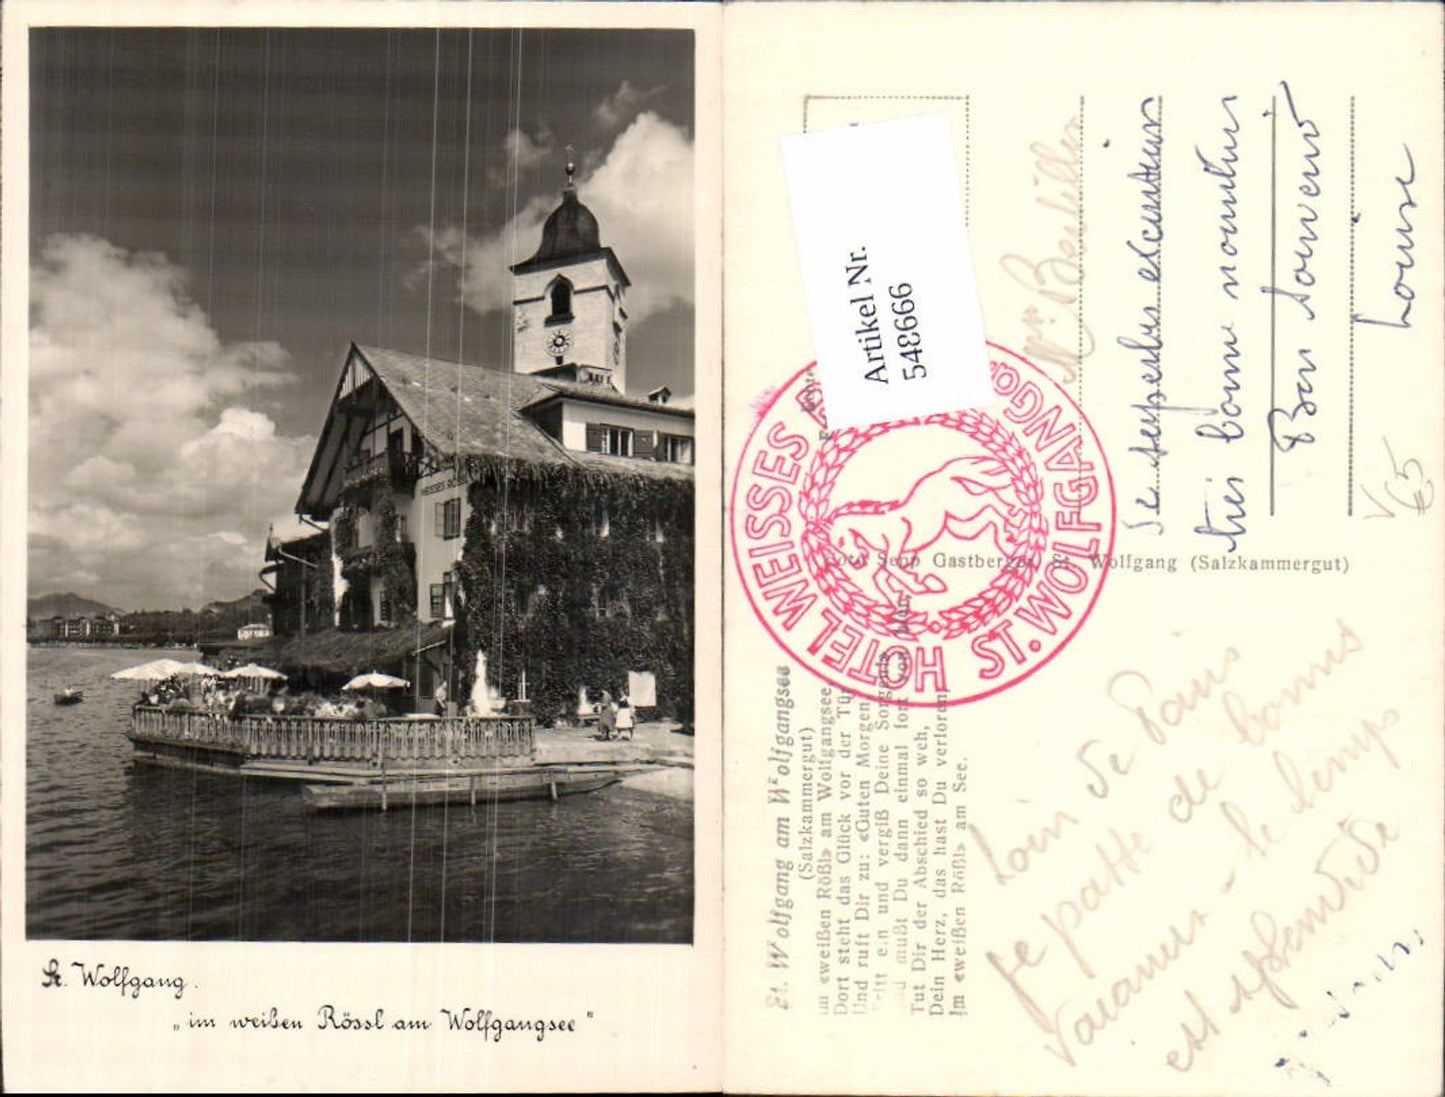 WEISSES RÖSSL
St. Wolfgang.
„im weißen Rössl am Wolfgangsee"
Artikel Nr.
548666
HOTEL WEISSES
ST. WOLFGANG
Foto Sepp Gastberger, St. Wolfgang (Salzkammergut)
St. Wolfgang am Wolfgangsee
(Salzkammergut)
Im «weißen Rößl» am Wolfgangsee,
Dort steht das Glück vor der Tür,
Und ruft Dir zu: «Guten Morgen,
Tritt ein und vergiß Deine Sorgen»
und mußt Du dann einmal fort von
Tut Dir der Abschied so weh,
Dein Herz, das hast Du verloren,
Im «weißen Rößl» am See.
Loin de Paris
Je de bonnes
vacances - le temps
est splendide
Mr
Le superbes
très bonne
Bon Souvenir
Louise
V
€5